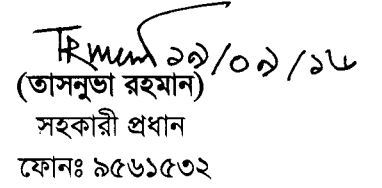 ১৯/০৯/১৮
(তাসনুভা রহমান)
সহকারী প্রধান
ফোনঃ ৯৫৬১৫৩২